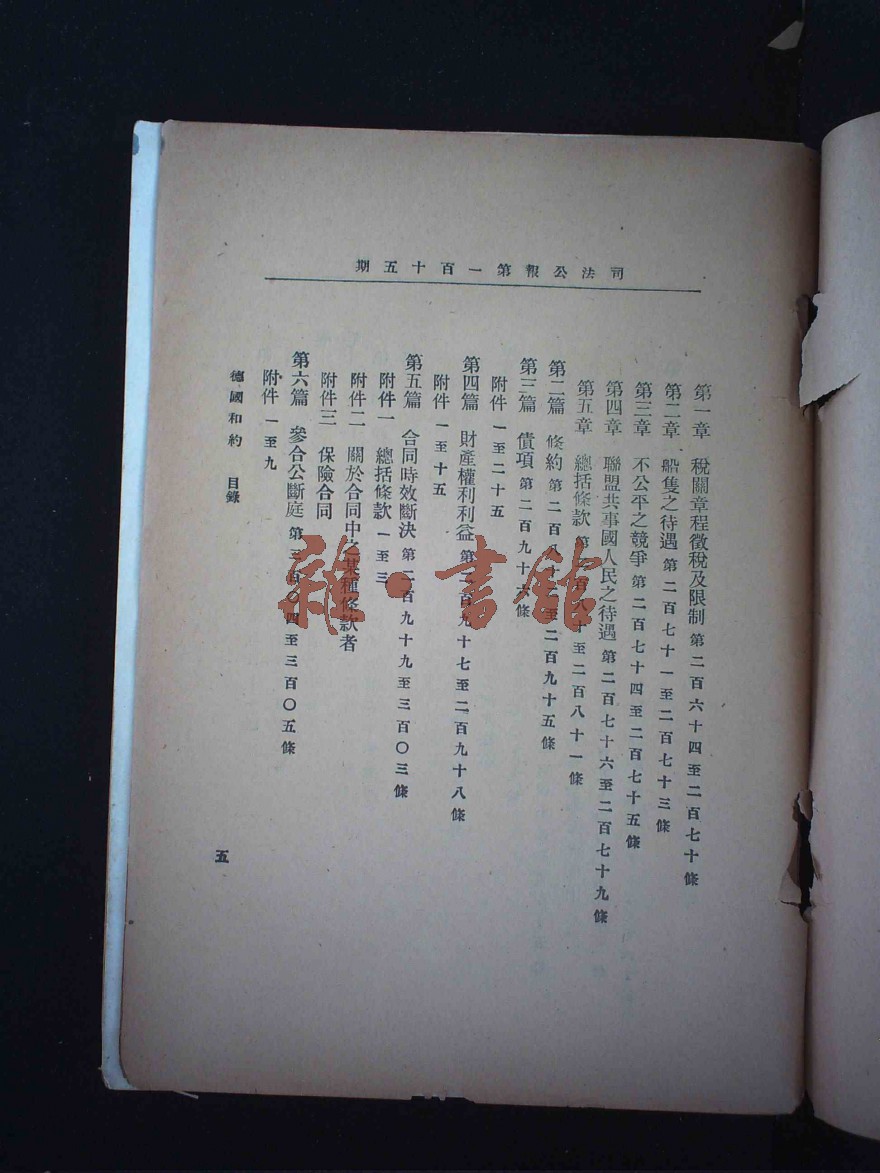 司法公報第一百十五期
第一章 稅關章程徵稅及限制 第二百六十四至二百七十條
第二章 船隻之待遇 第二百七十一至二百七十三條
第三章 不公平之競爭 第二百七十四至二百七十五條
第四章 聯盟共事國人民之待遇 第二百七十六至二百七十九條
第五章 總括條款 第二百八十至二百八十一條
第二篇 條約 第二百八十至二百九十五條
第三篇 債項 第二百九十六條
附件 一至二十五
第四篇 財產權利利益 第二百九十七至二百九十八條
附件 一至十五
第五篇 合同時效斷決 第二百九十九至三百〇三條
附件一 總括條款 一至三
附件二 關於合同中之某種條款者
附件三 保險合同
第六篇 參合公斷庭 第三百〇四至三百〇五條
附件 一至九
德國和約 目錄
五
雜·書館